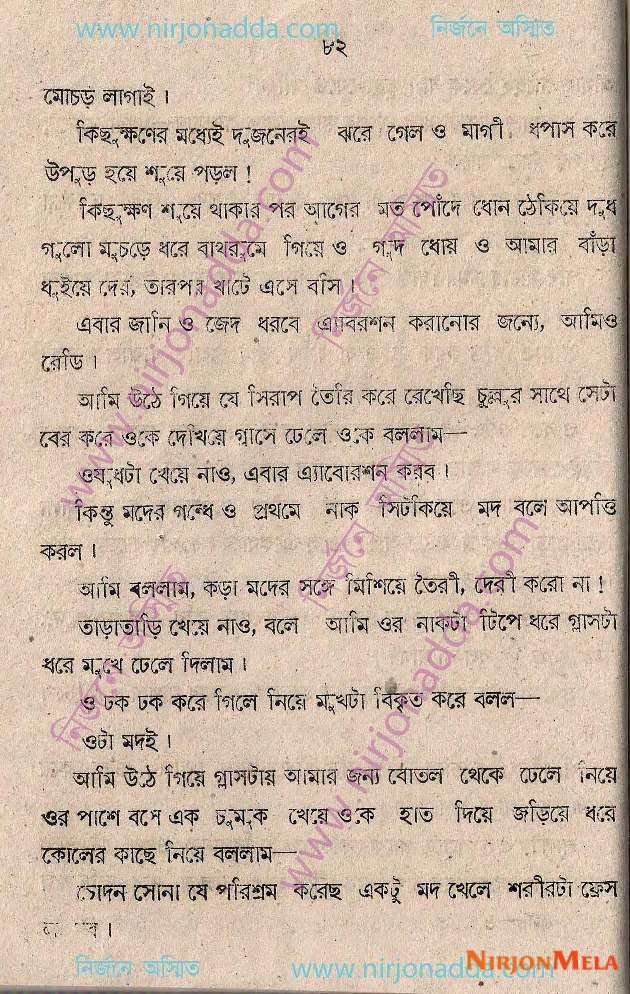 www.nirjonadda.com
নির্জনে অস্মিত
৮২
মোচড় লাগাই।
কিছুক্ষণের মধ্যেই দুজনেরই ঝরে গেল ও মাগী ধপাস করে
উপুড় হয়ে শুয়ে পড়ল!
কিছুক্ষণ শুয়ে থাকার পর আগের মত পোঁদে ধোন ঠেকিয়ে দুধ
গুলো মুচড়ে ধরে বাথরুমে গিয়ে ও গুদ ধোয় ও আমার বাঁড়া
ধুইয়ে দেয়, তারপর খাটে এসে বসি।
এবার জানি ও জেদ ধরবে এ্যাবরশন করানোর জন্যে, আমিও
রেডি।
আমি উঠে গিয়ে যে সিরাপ তৈরি করে রেখেছি চুল্লুর সাথে সেটা
বের করে ওকে দেখিয়ে গ্লাসে ঢেলে ওকে বললাম—
ওষুধটা খেয়ে নাও, এবার এ্যাবোরশন করব।
কিন্তু মদের গন্ধে ও প্রথমে নাক সিটকিয়ে মদ বলে আপত্তি
করল।
আমি বললাম, কড়া মদের সঙ্গে মিশিয়ে তৈরী, দেরী করো না!
তাড়াতাড়ি খেয়ে নাও, বলে আমি ওর নাকটা টিপে ধরে গ্লাসটা
ধরে মুখে ঢেলে দিলাম।
ও ঢক ঢক করে গিলে নিয়ে মুখটা বিকৃত করে বলল—
ওটা মদই।
আমি উঠে গিয়ে গ্লাসটায় আমার জন্য বোতল থেকে ঢেলে নিয়ে
ওর পাশে বসে এক চুমুক খেয়ে ওকে হাত দিয়ে জড়িয়ে ধরে
কোলের কাছে নিয়ে বললাম—
চোদন সোনা যে পরিশ্রম করেছ একটু মদ খেলে শরীরটা ফ্রেস
নির্জনে অস্মিত
www.nirjonadda.com
NIRJONMELA
www.nirjonadda.com
নির্জনে অস্মিত
www.nirjonadda.com
নির্জনে অস্মিত
নির্জনে অস্মিত